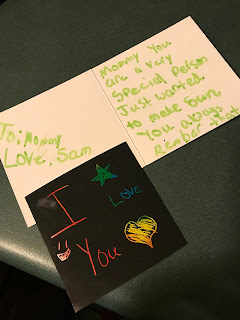 To: Mommy
Love, Sam
Mommy You
are a very
Special Person
Just wanted
to make Sure
You always
Rember that
I
Love
You